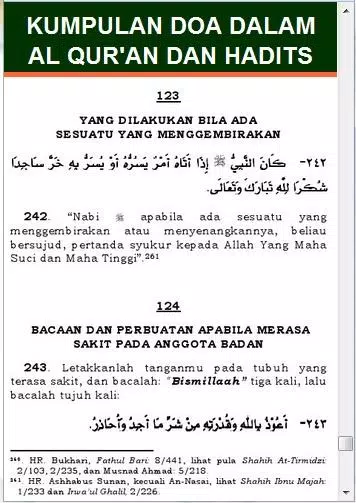 KUMPULAN DOA DALAM
AL QUR'AN DAN HADITS
123
YANG DILAKUKAN BILA ADA
SESUATU YANG MENGGEMBIRAKAN
٢٤٢- كَانَ النَّبِيُّ ﷺ إِذَا أَتَاهُ أَمْرٌ يَسُرُّهُ أَوْ يُسَرُّ بِهِ خَرَّ سَاجِدًا
شُكْرًا لِلَّهِ تَبَارَكَ وَتَعَالَى.
242. “Nabi ﷺ apabila ada sesuatu yang
menggembirakan atau menyenangkannya, beliau
bersujud, pertanda syukur kepada Allah Yang Maha
Suci dan Maha Tinggi”.261
124
BACAAN DAN PERBUATAN APABILA MERASA
SAKIT PADA ANGGOTA BADAN
243. Letakkanlah tanganmu pada tubuh yang
terasa sakit, dan bacalah: “Bismillaah” tiga kali, lalu
bacalah tujuh kali:
٢٤٣- أَعُوْذُ بِاللهِ وَقُدْرَتِهِ مِنْ شَرِّ مَا أَجِدُ وَأُحَاذِرُ.
260. HR. Bukhari, Fathul Bari: 8/441, lihat pula Shahih At-Tirmidzi:
2/103, 2/235, dan Musnad Ahmad: 5/218.
261. HR. Ashhabus Sunan, kecuali An-Nasai, lihat Shahih Ibnu Majah:
1/233 dan Irwa'ul Ghalil, 2/226.